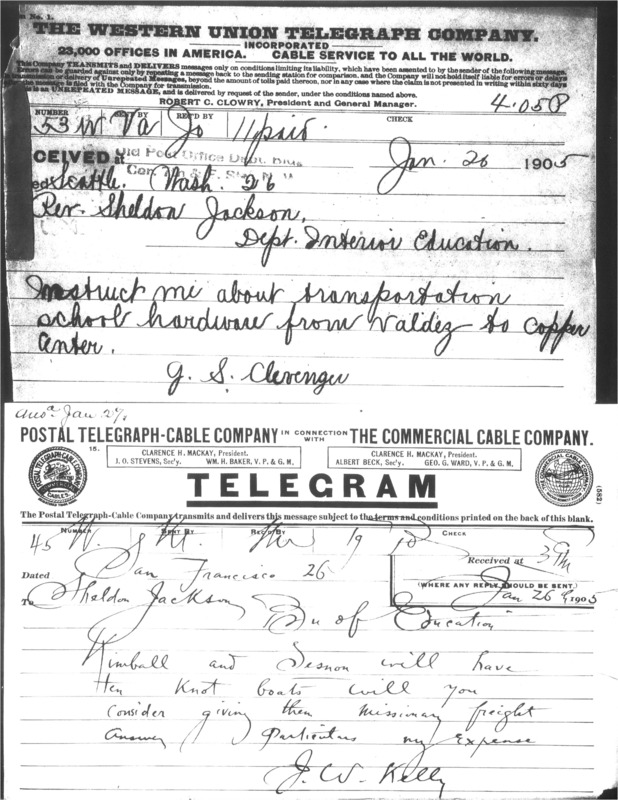 m No. 1.
THE WESTERN UNION TELEGRAPH COMPANY.
INCORPORATED
23,000 OFFICES IN AMERICA. CABLE SERVICE TO ALL THE WORLD.
This Company TRANSMITS and DELIVERS messages only on conditions limiting its liability, which have been assented to by the sender of the following message.
Errors can be guarded against only by repeating a message back to the sending station for comparison, and the Company will not hold itself liable for errors or delays
in transmission or delivery of Unrepeated Messages, beyond the amount of tolls paid thereon, nor in any case where the claim is not presented in writing within sixty days
the message is filed with the Company for transmission.
is is an UNREPEATED MESSAGE, and is delivered by request of the sender, under the conditions named above.
ROBERT C. CLOWRY, President and General Manager.
4.05P
NUMBER BY REC'D BY CHECK
53 W Va Jo 11 paid.
CEIVED at Old Post Office Dept. Jan. 26 1905
ed Seattle. Wash. 26
Rev. Sheldon Jackson,
Dept. Interior Education.
Instruct me about transportation
school hardware from Valdez to Copper
enter.
G. S. Clevenger
Ansd Jan 27.
POSTAL TELEGRAPH-CABLE COMPANY IN CONNECTION WITH THE COMMERCIAL CABLE COMPANY.
15.
CLARENCE H. MACKAY, President. CLARENCE H. MACKAY, President.
J. O. STEVENS, Sec'y. WM. H. BAKER, V. P. & G. M. ALBERT BECK, Sec'y. GEO. G. WARD, V. P. & G. M.
POSTAL TELEGRAPH-CABLE COMPANY
CABLES.
THE COMMERCIAL CABLE COMPANY
(582)
TELEGRAM
The Postal Telegraph-Cable Company transmits and delivers this message subject to the terms and conditions printed on the back of this blank.
NUMBER SENT BY REC'D BY CHECK
45 W.
Received at
Dated San Francisco 26
(WHERE ANY REPLY SHOULD BE SENT.)
Jan 26 1905
To Sheldon Jackson Bu of Education
Kimball and Sesnon will have
ten knot boats will you
consider giving them missionary freight
answer particulars my expense
J. W. Kelly